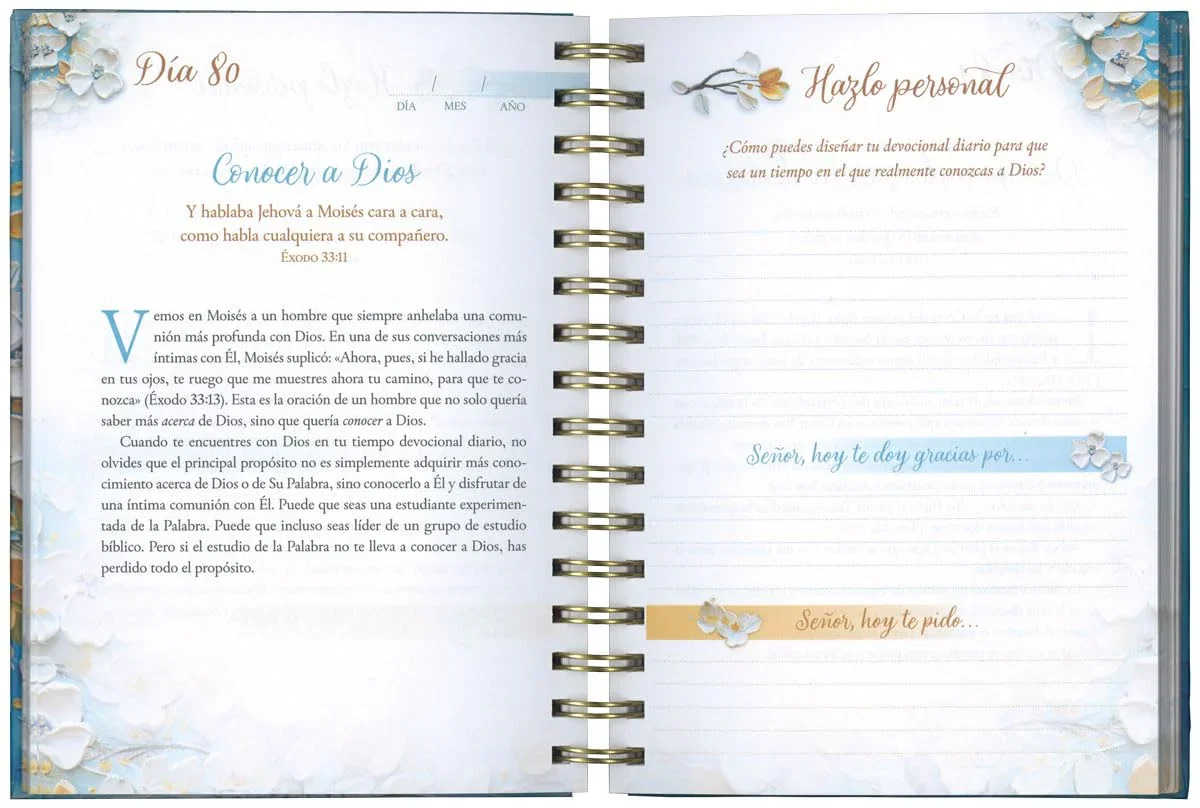 Día 80
/ /
DÍA MES AÑO
Conocer a Dios
Y hablaba Jehová a Moisés cara a cara,
como habla cualquiera a su compañero.
Éxodo 33:11
Vemos en Moisés a un hombre que siempre anhelaba una comu-
nión más profunda con Dios. En una de sus conversaciones más
íntimas con Él, Moisés suplicó: «Ahora, pues, si he hallado gracia
en tus ojos, te ruego que me muestres ahora tu camino, para que te co-
nozca» (Éxodo 33:13). Esta es la oración de un hombre que no solo quería
saber más acerca de Dios, sino que quería conocer a Dios.
Cuando te encuentres con Dios en tu tiempo devocional diario, no
olvides que el principal propósito no es simplemente adquirir más cono-
cimiento acerca de Dios o de Su Palabra, sino conocerlo a Él y disfrutar de
una íntima comunión con Él. Puede que seas una estudiante experimen-
tada de la Palabra. Puede que incluso seas líder de un grupo de estudio
bíblico. Pero si el estudio de la Palabra no te lleva a conocer a Dios, has
perdido todo el propósito.
Hazlo personal
¿Cómo puedes diseñar tu devocional diario para que
sea un tiempo en el que realmente conozcas a Dios?
Señor, hoy te doy gracias por...
Señor, hoy te pido...